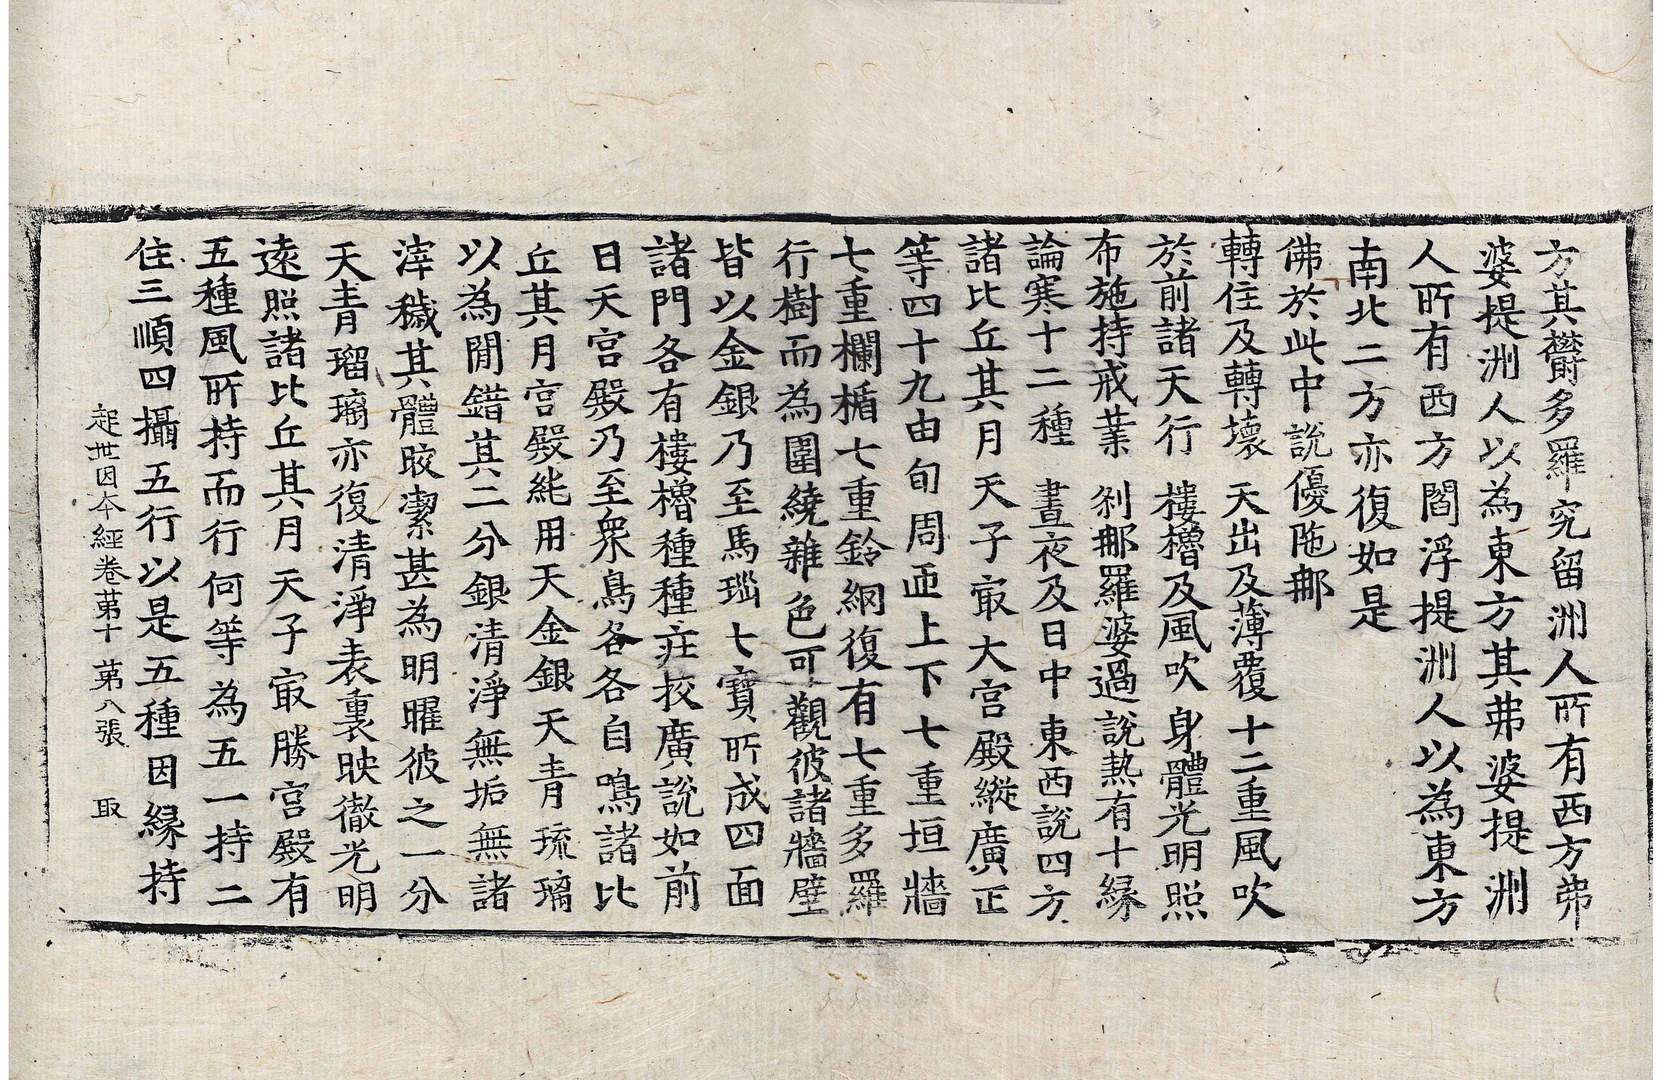 方其欝多羅究留洲人所有西方弗
婆提洲人以為東方其弗婆提洲
人所有西方閻浮提洲人以為東方
南北二方亦復如是
佛於此中說優陁那
轉住及轉壞　天出及薄覆　十二重風吹
於前諸天行　樓櫓及風吹　身體光明照
布施持戒業　剎那羅婆過　說熱有十緣
論寒十二種　晝夜及日中　東西說四方
諸比丘其月天子宮殿縱廣正
等四十九由旬周迊上下七重垣牆
七重欄楯七重鈴網復有七重多羅
行樹而為圍繞雜色可觀彼諸牆壁
皆以金銀乃至馬瑙七寶所成四面
諸門各有樓櫓種種莊挍廣說如前
日天宮殿乃至衆鳥各各自鳴諸比
丘其月宮殿純用天金銀天青琉璃
以為閒錯其二分銀清淨無垢無諸
滓穢其體皎潔甚為明曜彼之一分
天青瑠璃亦復清淨表裏映徹光明
遠照諸比丘其月天子寂勝宮殿有
五種風所持而行何等為五一持二
住三順四攝五行以是五種因緣持
起世因本經卷第十　第八張　取